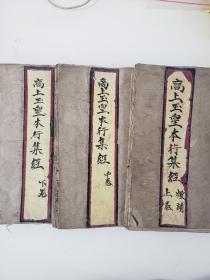 高上玉皇本行集經 上卷
高上玉皇本行集經 中卷
高上玉皇本行集經 下卷